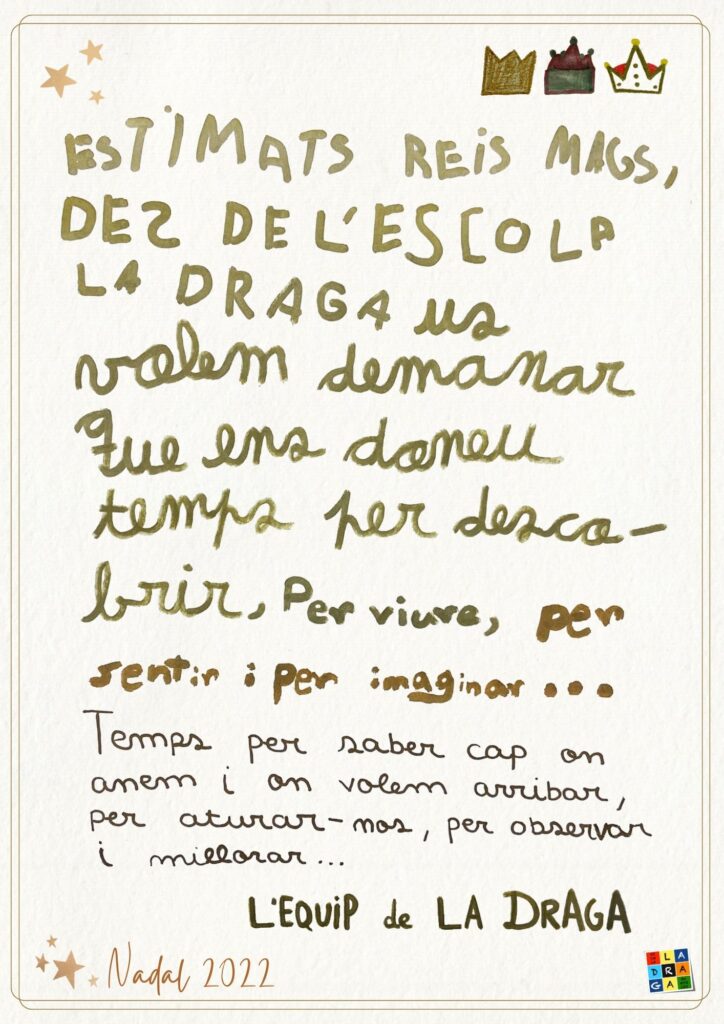 ESTIMATS REIS MAGS,
DES DE L'ESCOLA
LA DRAGA us
volem demanar
que ens doneu
temps per desco-
brir, Per viure, per
sentir i per imaginar...
Temps per saber cap on
anem i on volem arribar,
per aturar-nos, per observar
i millorar...
L'EQUIP de LA DRAGA
Nadal 2022
LA
DRA
GA